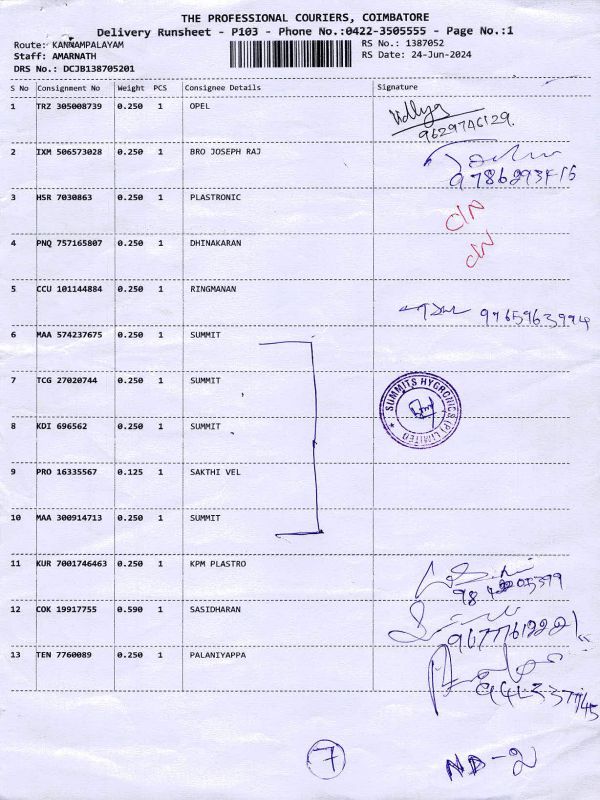 THE PROFESSIONAL COURIERS, COIMBATORE
Delivery Runsheet - P103 - Phone No.:0422-3505555 - Page No.:1
Route: KANNAMPALAYAM
RS No.: 1387052
Staff: AMARNATH
RS Date: 24-Jun-2024
DRS No.: DCJB138705201
S No Consignment No Weight PCS Consignee Details Signature
1 TRZ 305008739 0.250 1 OPEL Vidhya
9629746129.
2 IXM 506573028 0.250 1 BRO JOSEPH RAJ
3 HSR 7030863 0.250 1 PLASTRONIC D/N
4 PNQ 757165807 0.250 1 DHINAKARAN D/N
5 CCU 101144884 0.250 1 RINGMANAN 9965963994
6 MAA 574237675 0.250 1 SUMMIT
7 TCG 27020744 0.250 1 SUMMIT
SUMMITS HYGRONICS (P) LIMITED
8 KDI 696562 0.250 1 SUMMIT
9 PRO 16335567 0.125 1 SAKTHI VEL
10 MAA 300914713 0.250 1 SUMMIT
11 KUR 7001746463 0.250 1 KPM PLASTRO
12 COK 19917755 0.590 1 SASIDHARAN
13 TEN 7760089 0.250 1 PALANIYAPPA
7
ND - 2